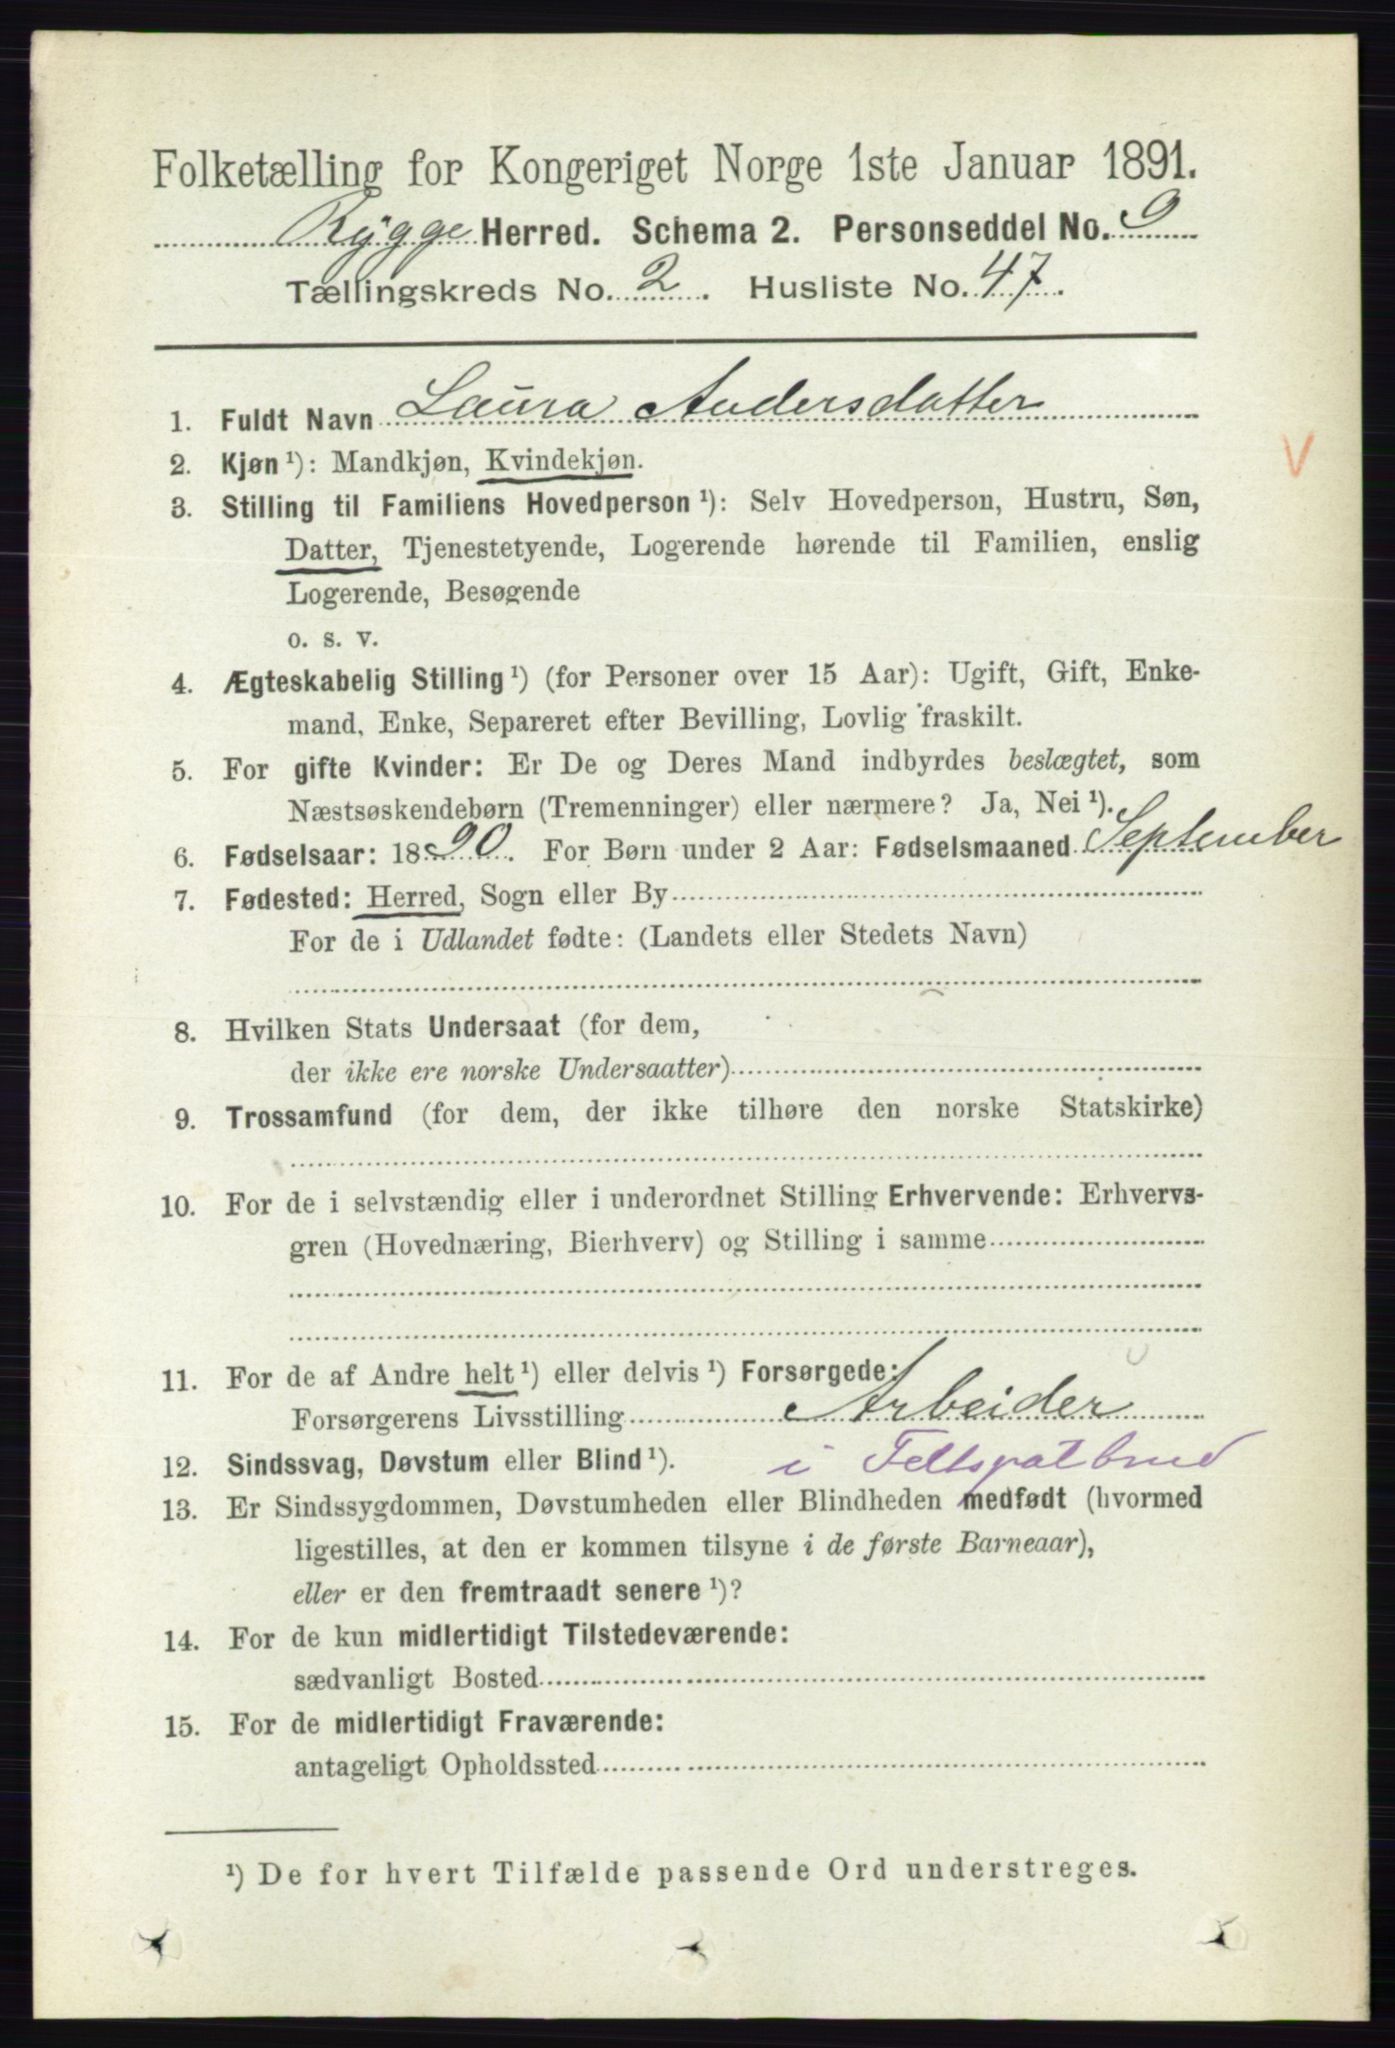 Folketælling for Kongeriget Norge 1ste Januar 1891.
Rygge Herred. Schema 2. Personseddel No. 9
Tællingskreds No. 2. Husliste No. 47.
1. Fuldt Navn Laura Andersdatter
2. Kjøn ¹): Mandkjøn, Kvindekjøn.
3. Stilling til Familiens Hovedperson ¹): Selv Hovedperson, Hustru, Søn,
Datter, Tjenestetyende, Logerende hørende til Familien, enslig
Logerende, Besøgende
o. s. v.
4. Ægteskabelig Stilling ¹) (for Personer over 15 Aar): Ugift, Gift, Enke-
mand, Enke, Separeret efter Bevilling, Lovlig fraskilt.
5. For gifte Kvinder: Er De og Deres Mand indbyrdes beslægtet, som
Næstsøskendebørn (Tremenninger) eller nærmere? Ja, Nei ¹).
6. Fødselsaar: 1890. For Børn under 2 Aar: Fødselsmaaned September
7. Fødested: Herred, Sogn eller By
For de i Udlandet fødte: (Landets eller Stedets Navn)
8. Hvilken Stats Undersaat (for dem,
der ikke ere norske Undersaatter)
9. Trossamfund (for dem, der ikke tilhøre den norske Statskirke)
10. For de i selvstændig eller i underordnet Stilling Erhvervende: Erhvervs-
gren (Hovednæring, Bierhverv) og Stilling i samme
11. For de af Andre helt ¹) eller delvis ¹) Forsørgede:
Forsørgerens Livsstilling Arbeider
12. Sindssvag, Døvstum eller Blind ¹). i Feltspatbrud
13. Er Sindssygdommen, Døvstumheden eller Blindheden medfødt (hvormed
ligestilles, at den er kommen tilsyne i de første Barneaar),
eller er den fremtraadt senere ¹)?
14. For de kun midlertidigt Tilstedeværende:
sædvanligt Bosted
15. For de midlertidigt Fraværende:
antageligt Opholdssted
¹) De for hvert Tilfælde passende Ord understreges.